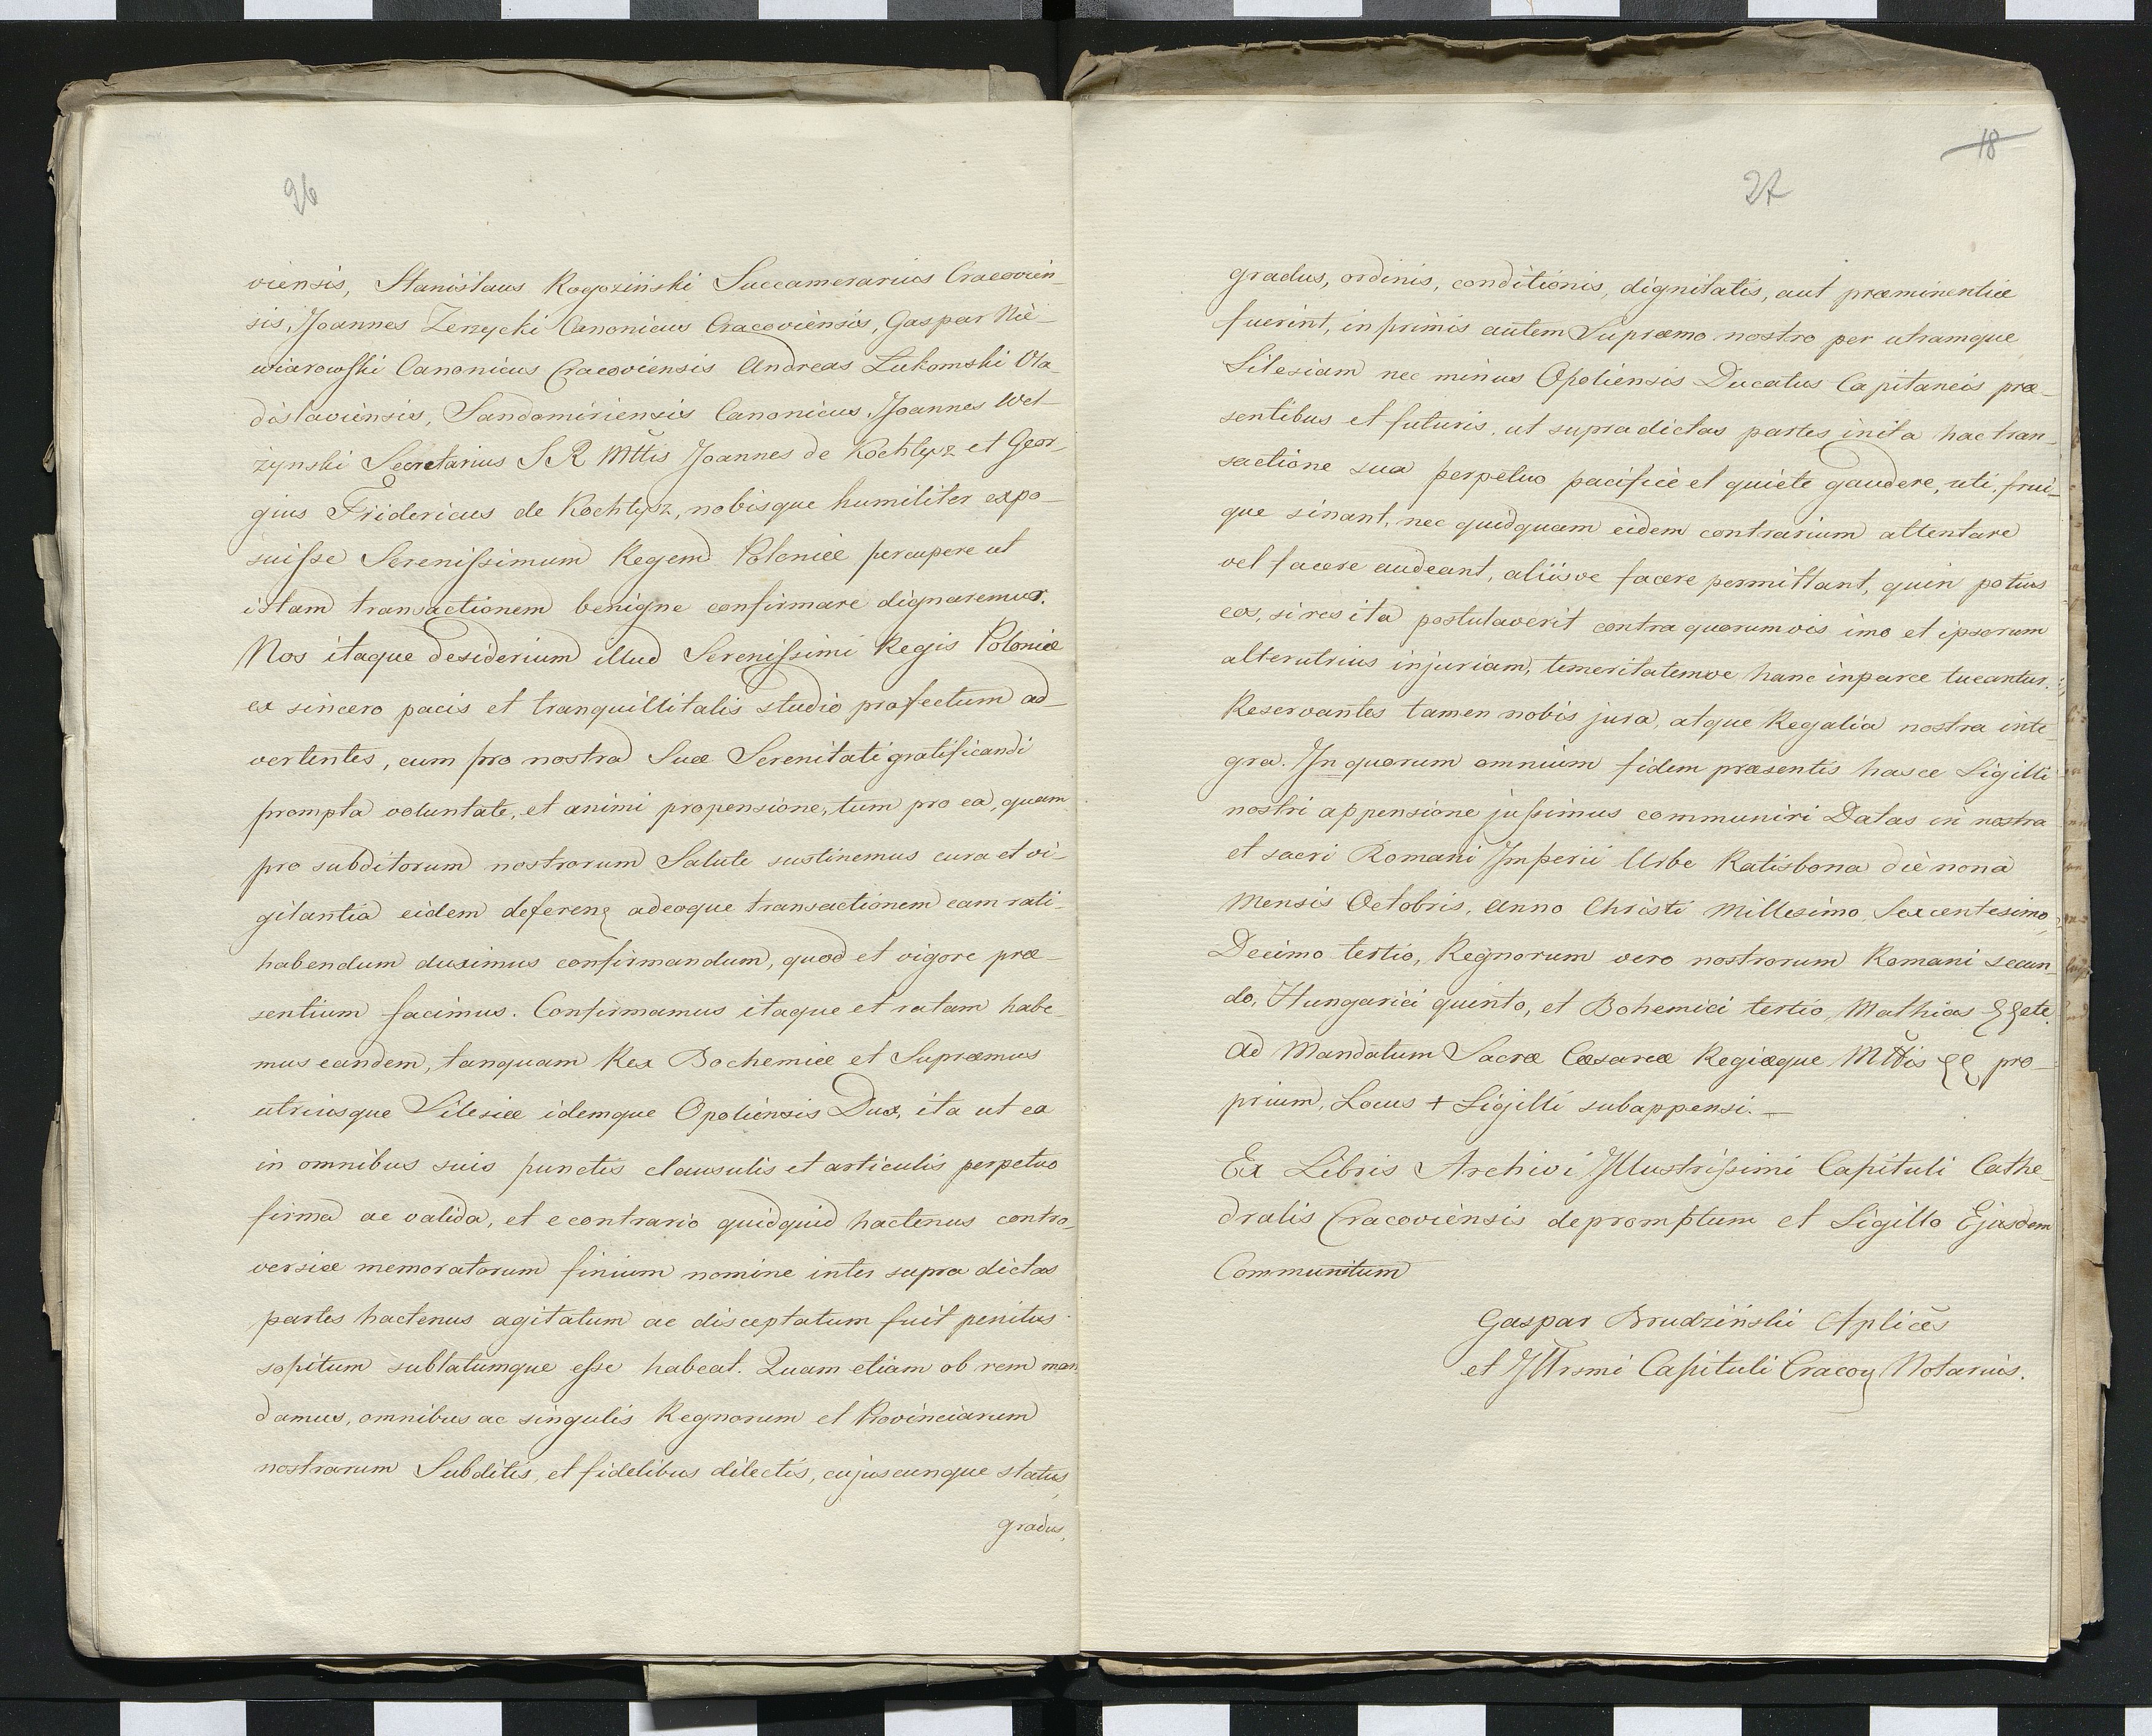 26
viensis, Stanislaus Rogoziński Succamerarius Cracovien-
sis, Joannes Zerzycki Canonicus Cracoviensis, Gaspar Nie-
wiarowski Canonicus Cracoviensis Andreas Łukomski Vla-
dislaviensis, Sandomiriensis Canonicus, Joannes Wel-
żynski Secretarius S R Mttis Joannes de Kochtysz et Geor-
gius Fridericus de Kochtysz, nobisque humiliter expo-
suisse Serenissimum Regem Poloniæ percupere ut
istam transactionem benigne confirmare dignaremur.
Nos itaque desiderium illud Serenissimi Regis Poloniæ
ex sincero pacis et tranquillitatis studio profectum ad-
vertentes, cum pro nostra Suæ Serenitati gratificandi
prompta voluntate, et animi propensione, tum pro ea, quam
pro subditorum nostrorum Salute sustinemus cura et vi-
gilantia eidem deferen adeoque transactionem eam rati-
habendum duximus confirmandum, quod et vigore præ-
sentium facimus. Confirmamus itaque et ratam habe-
mus eandem, tanquam Rex Bochemiæ et Supræmus
utriusque Silesiæ idemque Opoliensis Dux, ita ut ea
in omnibus suis punctis clausulis et articulis perpetuo
firma ac valida, et e contrario quidquid hactenus contro-
versiæ memoratorum finium nomine inter supra dictas
partes hactenus agitatum ac disceptatum fuit penitus
sopitum sublatumque esse habeat. Quam etiam ob rem man
damus, omnibus ac singulis Regnorum et Provinciarum
nostrarum Subditis, et fidelibus dilectis, cujuscunque status,
gradus,
18
27
gradus, ordinis, conditionis, dignitatis, aut præminentiæ
fuerint, in primis autem Supræmo nostro per utramque
Silesiam nec minus Opoliensis Ducatus Capitaneis præ-
sentibus et futuris, ut supradictas partes inita hac tran-
sactione sua perpetuo pacificè et quiete gaudere, uti, frui-
que sinant, nec quidquam eidem contrarium attentare
vel facere audeant, aliisve facere permittant, quin potius
eos, si res ita postulaverit contra quorumvis imo et ipsorum
alterutrius injuriam, temeritatemve hanc in parce tueantur.
Reservantes tamen nobis jura, atque Regalia nostra inte-
gra. In quorum omnium fidem præsentis hasce Sigilli
nostri appensione jussimus communiri Datas in nostra
et sacri Romani Imperii Urbe Ratisbona die nona
Mensis Octobris, Anno Christi Millesimo, Sexcentesimo,
Decimo tertio, Regnorum vero nostrorum Romani secun-
do, Hungarici quinto, et Bohemici tertio, Mathias etc.
Ad Mandatum Sacræ Cæsareæ Regiæque Mttis pro-
prium, Locus + Sigilli subappensi. —
Ex Libris Archivi Illustrissimi Capituli Cathe-
dralis Cracoviensis depromptum et Sigillo Ejusdem
Communitum
Gaspar Brudziński Aplicŭs
et Illrsmi Capituli Cracov Notarius.